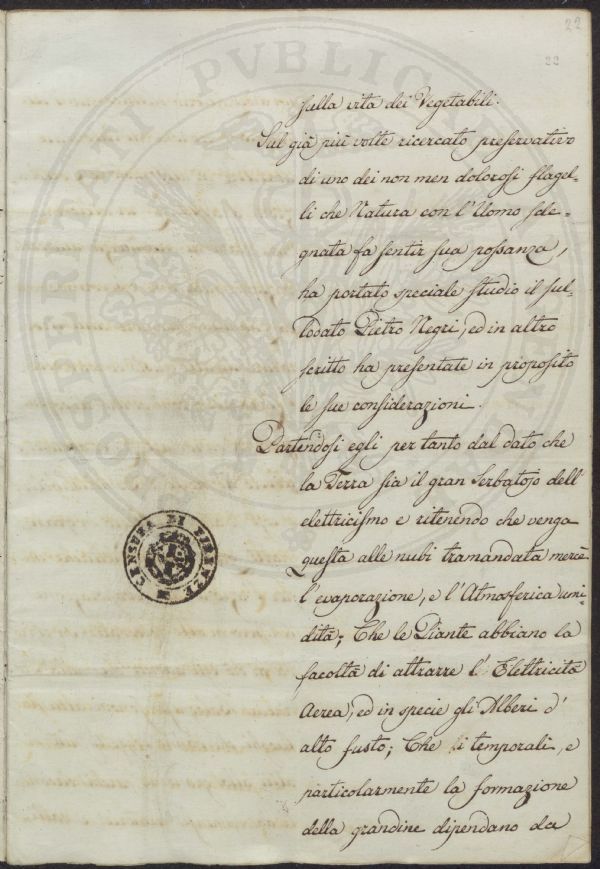 22
22
sulla vita dei Vegetabili.
Sul già più volte ricercato preservativo
di uno dei non men dolorosi flagel-
li che Natura con l'Uomo sde-
gnata fa sentir sua possanza,
ha portato speciale studio il sul-
lodato Pietro Negri, ed in altro
scritto ha presentate in proposito
le sue considerazioni.
Partendosi egli per tanto dal dato che
la Terra sia il gran Serbatojo dell'
elettricismo e ritenendo che venga
questa alle nubi tramandata mercè
l'evaporazione, e l'Atmosferica umi-
dità; Che le Piante abbiano la
facoltà di attrarre l'Elettricità
Aerea, ed in specie gli Alberi d'
alto fusto; Che i temporali, e
particolarmente la formazione
della grandine dipendano da
CENSURA DI FIRENZE